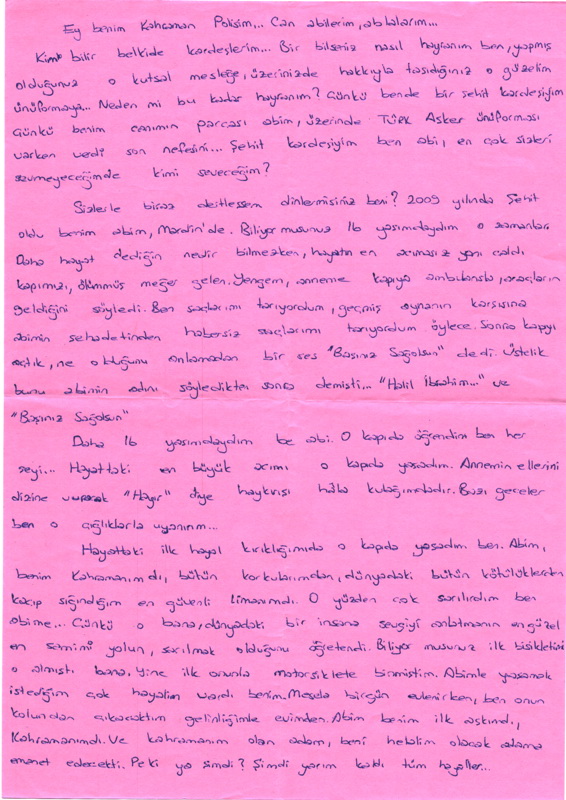 Ey benim Kahraman Polisim... Can abilerim, ablalarım...
Kim bilir belkide kardeşlerim... Bir bilseniz nasıl hayranım ben, yapmış
olduğunuz o kutsal mesleğe, üzerinizde hakkıyla taşıdığınız o güzelim
üniformaya... Neden mi bu kadar hayranım? Çünkü bende bir şehit kardeşiyim
Çünkü benim canımın parçası abim, üzerinde TÜRK Asker üniforması
varken verdi son nefesini... Şehit kardeşiyim ben abi, en çok sizleri
sevmeyeceğimde kimi seveceğim?
Sizlerle biraz dertleşsem dinlermisiniz beni? 2009 yılında Şehit
oldu benim abim, Mardin'de. Biliyor musunuz 16 yaşımdaydım o zamanlar
Daha hayat dediğin nedir bilmezken, hayatın en acımasız yanı çaldı
kapımızı, ölümmüş meğer gelen. Yengem, anneme kapıya ambulansla, araçların
geldiğini söyledi. Ben saçlarımı tarıyordum, geçmiş aynanın karşısına
abimin şehadetinden habersiz saçlarımı tarıyordum öylece. Sonra kapıyı
açtık, ne olduğunu anlamadan bir ses "Başınız Sağolsun" dedi. Üstelik
bunu abimin adını söyledikten sonra demişti... "Halil İbrahim..." ve
"Başınız Sağolsun"
Daha 16 yaşımdaydım be abi. O kapıda öğrendim ben her
şeyi... Hayattaki en büyük acımı o kapıda yaşadım. Annemin ellerini
dizine vurarak "Hayır" diye haykırışı hâla kulağımdadır. Bazı geceler
ben o çığlıklarla uyanırım...
Hayattaki ilk hayal kırıklığımıda o kapıda yaşadım ben. Abim,
benim Kahramanımdı, bütün korkularımdan, dünyadaki bütün kötülüklerden
kaçıp sığındığım en güvenli limanımdı. O yüzden çok sarılırdım ben
abime... Çünkü o bana, dünyadaki bir insana sevgiyi anlatmanın en güzel
en samimi yolun, sarılmak olduğunu öğretendi. Biliyor musunuz ilk bisikletimi
o almıştı bana. Yine ilk onunla motorsiklete binmiştim. Abimle yaşamak
istediğim çok hayalim vardı benim. Mesela birgün evlenirken, ben onun
kolundan çıkacaktım gelinliğimle evimden. Abim benim ilk aşkımdı,
Kahramanımdı. Ve kahramanım olan adam, beni helalim olacak adama
emanet edecekti. Peki ya şimdi? Şimdi yarım kaldı tüm hayaller...